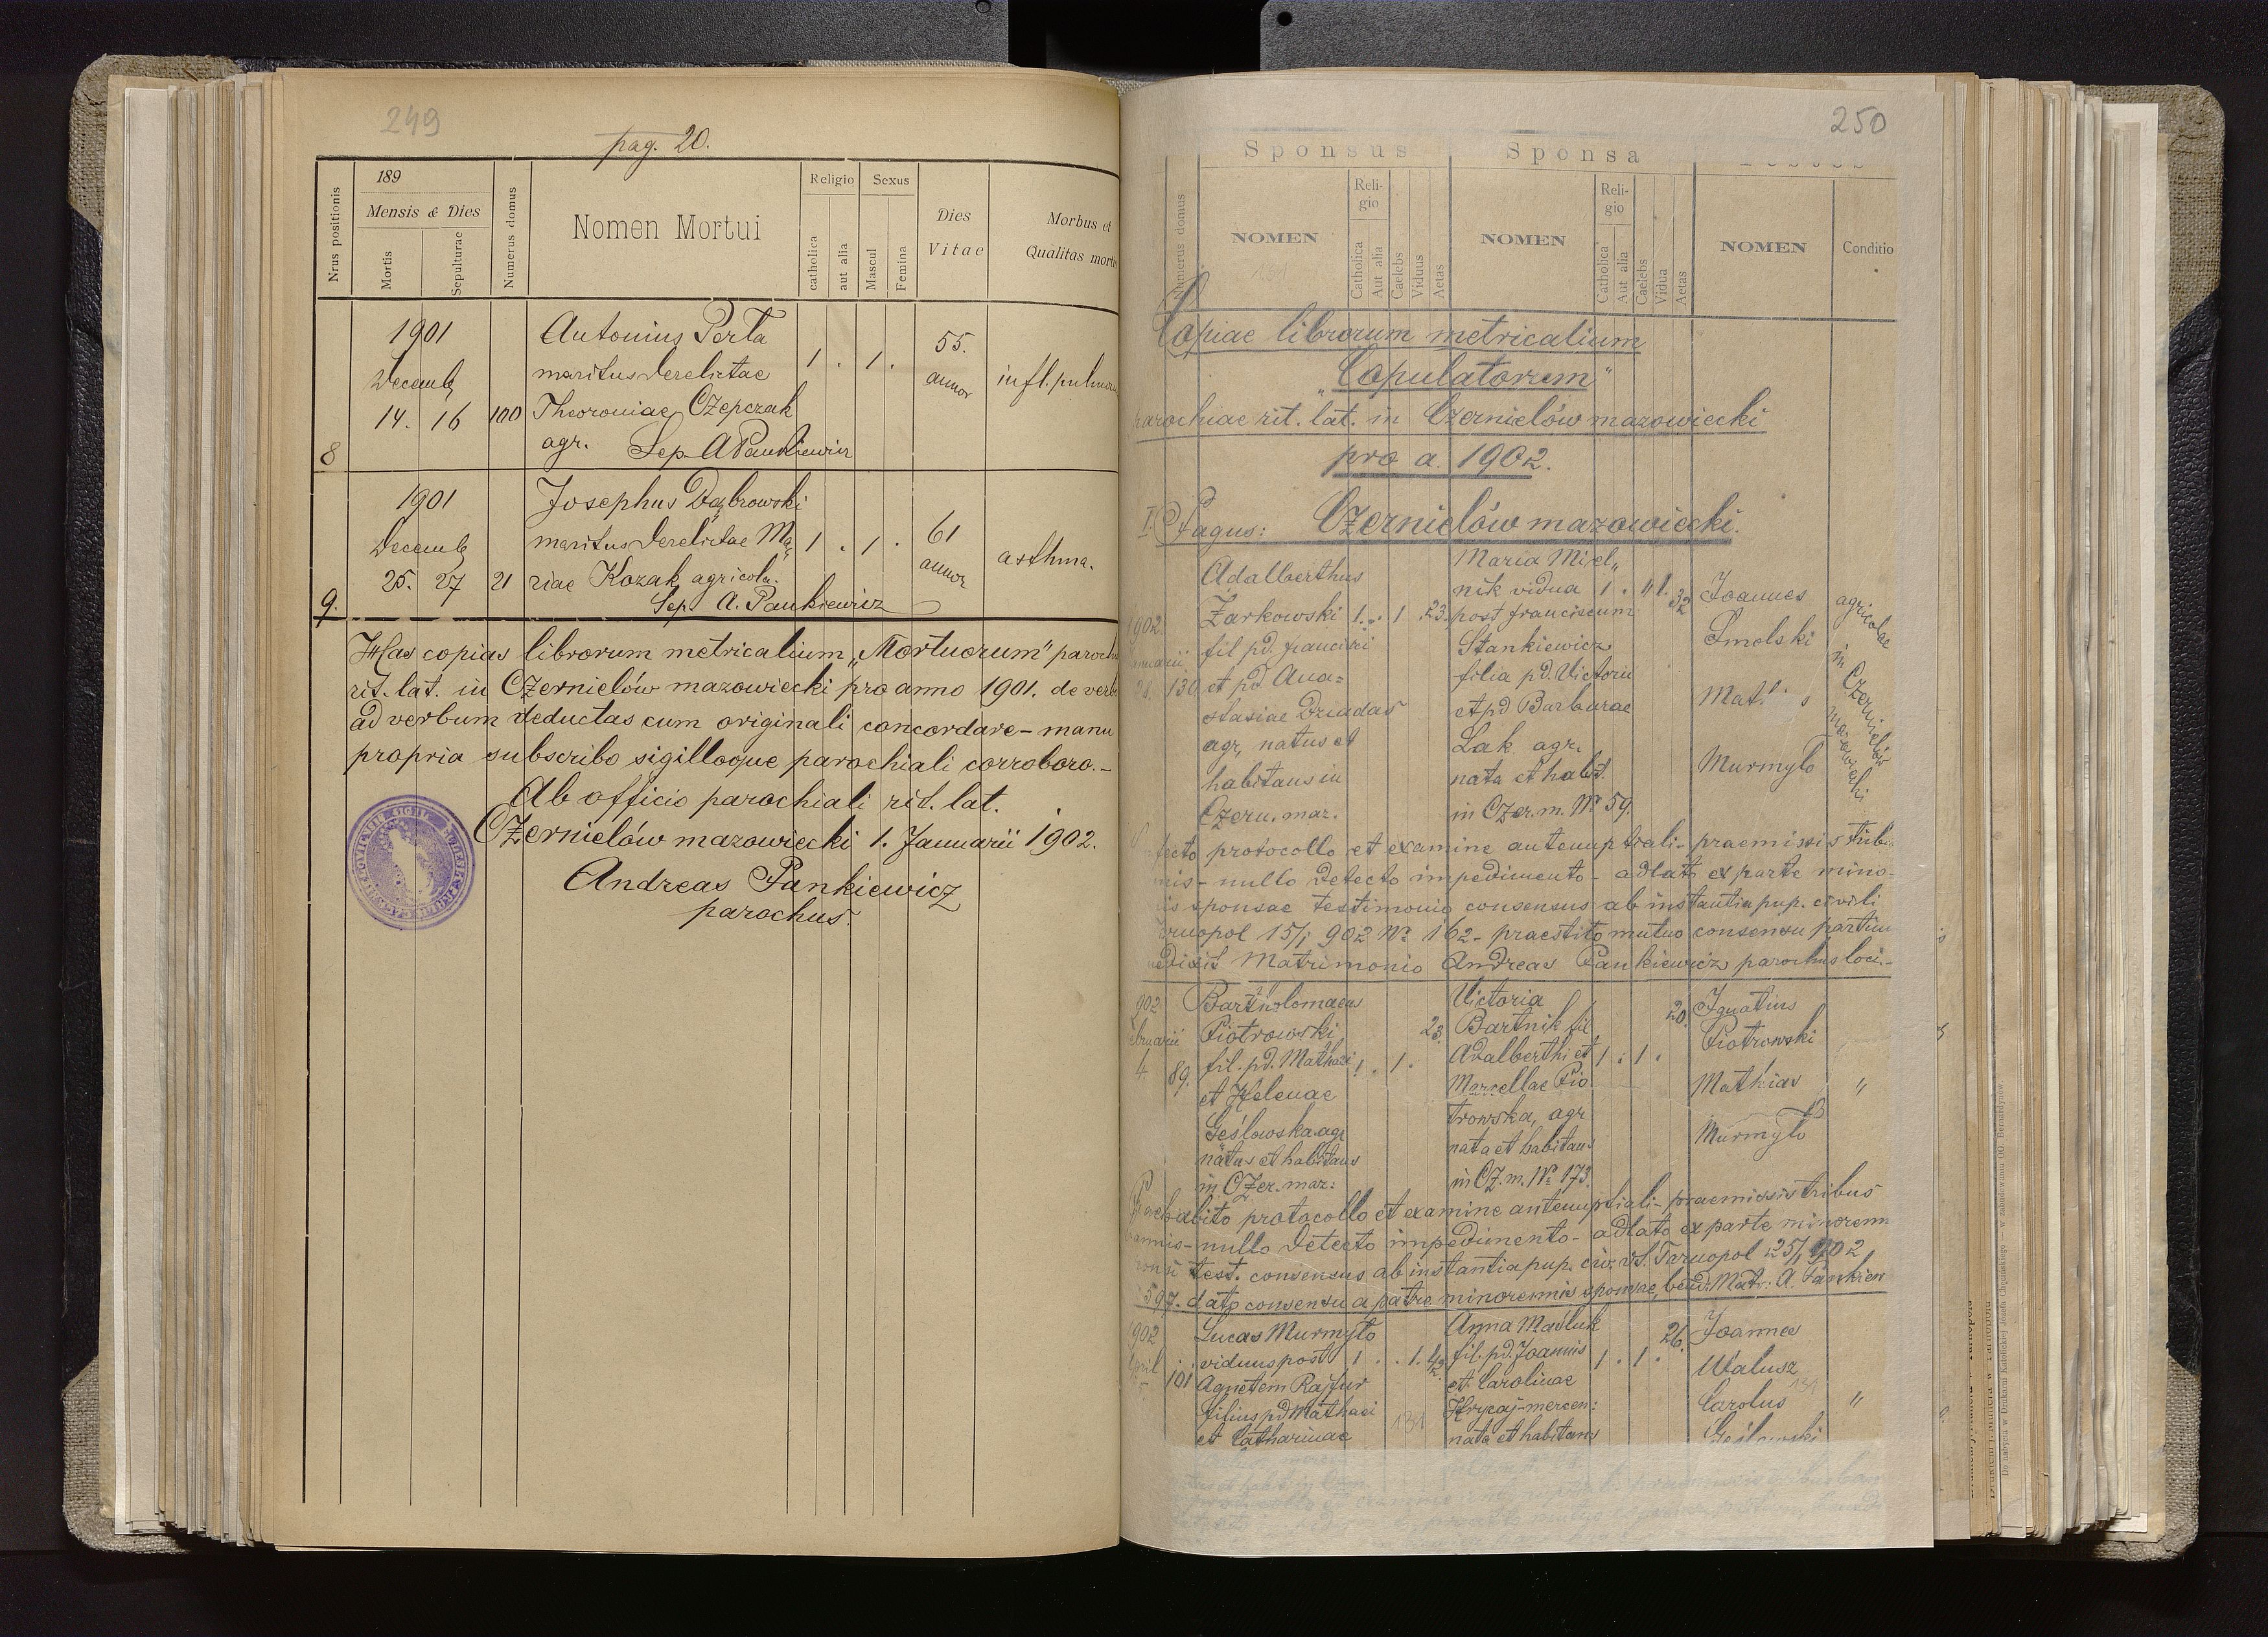 249
pag. 20.
Nrus positionis
189
Mensis & Dies
Mortis
Sepulturae
Numerus domus
Nomen Mortui
Religio
catholica
aut alia
Sexus
Mascul
Femina
Dies
Vitae
Morbus et
Qualitas mortis
1901
Decemb
14. 16 100
8
Antonius Perta
maritus derelictae
Theroniae Czepczak
agr. Sep. A Pankiewicz
1 . 1 .
55.
annor
infl. pulmon
1901
Decemb
25. 27 21
9.
Josephus Dąbrowski
maritus derelictae Ma
riae Kozak agricola.
Sep. A. Pankiewicz
1 . 1 .
61
annor
asthma.
Has copias librorum metricalium „Mortuorum" paroch
rit. lat. in Czernielów mazowiecki pro anno 1901. de verb
ad verbum deductas cum originali concordare - manu
propria subscribo sigilloque parochiali corroboro. -
Ab officio parochiali rit. lat.
Czernielów mazowiecki 1. Januarii 1902.
Andreas Pankiewicz
parochus.
250
Sponsus
Sponsa
Testes
Numerus domus
NOMEN
Reli-
gio
Catholica
Aut alia
Caelebs
Viduus
Aetas
NOMEN
Reli-
gio
Catholica
Aut alia
Caelebs
Vidua
Aetas
NOMEN
Conditio
Copiae librorum metricalium
„Copulatorum"
parochiae rit. lat. in Czernielów mazowiecki
pro a. 1902.
I. Pagus: Czernielów mazowiecki.
1902
Januarii
28. 130
Adalberthus
Żarkowski
fil pd. francisci
et pd. Ana=
stasiae Dziadas
agr, natus et
habitans in
Czern. mar.
1 . 1 . 23.
Maria Miel„
nik vidua
post franciscum
Stankiewicz
filia pd. Victorii
et pd Barbarae
Lak agr.
nata et habit.
in Czer. m. № 59.
1 . " 1. 32
Joannes
Smolski
Murmyło
agricolae
in
Czernielów
mazowiecki
fecto protocollo et examine antenuptiali - praemissis tribu
nis - nullo detecto impedimento - adlato ex parte mino-
is sponsae testimonio consensus ab instantia pup. civili
rnopol 15/1 902 № 162 - praestito mutuo consensu partium
nedixit Matrimonio Andreas Pankiewicz parochus loci. -
902
ebruarii
4. 89.
Bartholomaeus
Piotrowski
fil. pd. Mathaei
et Helenae
Geślowska agr
natus et habitans
in Czer. maz:
23.
1 . 1 .
Victoria
Bartnik fil
Adalberthi et
Marcellae Pio
trowska, agr
nata et habitans
in Cz. m. № 173.
20.
1 . 1 .
Ignatius
Piotrowski
Mathias
Murmyło
"
protocollo et examine antenuptiali - praemissis tribus
bannis - nullo detecto impedimento - adlato ex parte minorenn
sponsi test. consensus ab instantia pup. civ. Tarnopol 25/1 902
597. dato consensu a patre minorennis sponsae, bened. Matr: A. Pankiew
1902
April
101
Lucas Murmyło
viduus post
Agnetem Rajfur
filius pd Mathaei
et Catharinae
1 . . 1. 42.
131
Anna Maśluk
fil. pd. Joannis
et Carolinae
Hrycaj - mercen:
nata et habitans
26.
1 . 1 .
Joannes
Walusz
131
Carolus
Geślowski
"